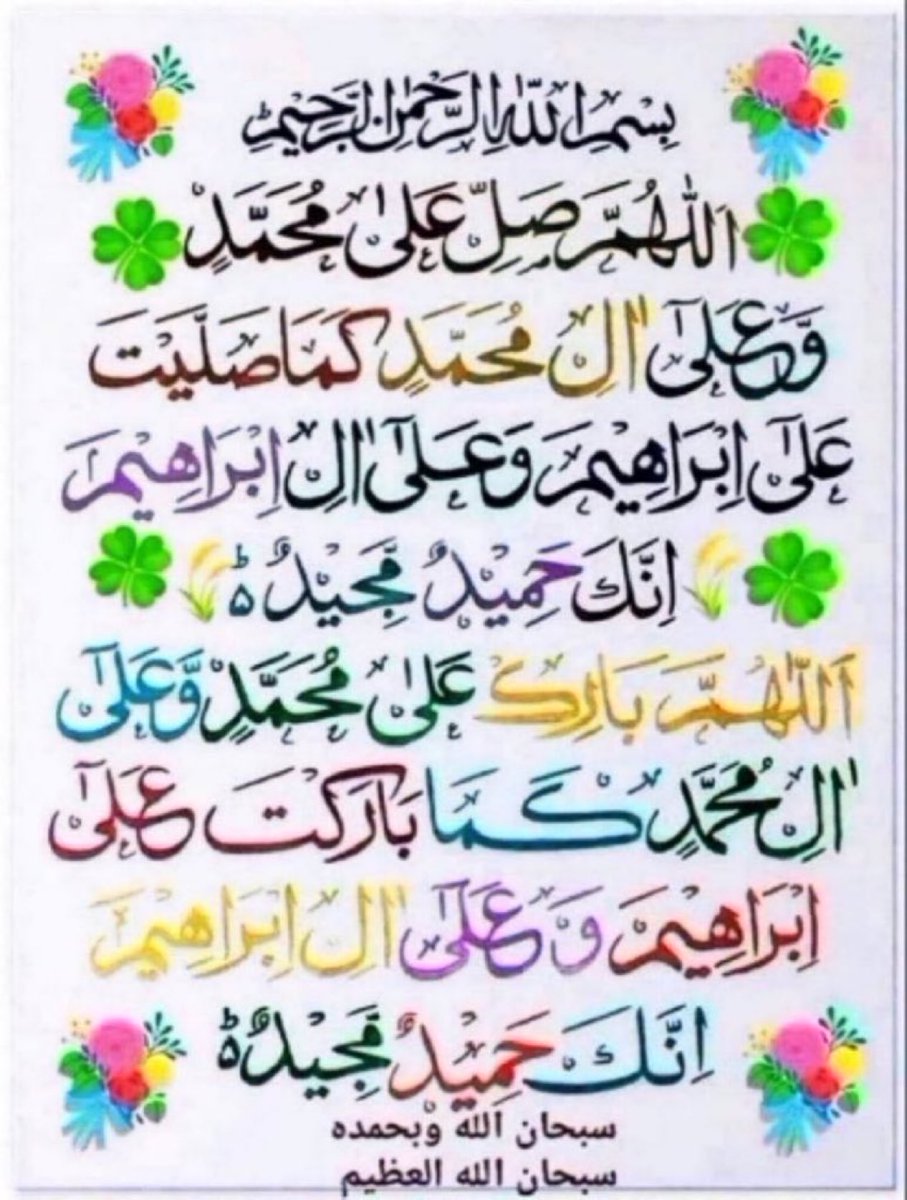 بِسْمِ اللّٰهِ الرَّحْمٰنِ الرَّحِيْمِ
اَللّٰهُمَّ صَلِّ عَلٰى مُحَمَّدٍ
وَّعَلٰٓى اٰلِ مُحَمَّدٍ كَمَا صَلَّيْتَ
عَلٰٓى اِبْرَاهِيْمَ وَعَلٰٓى اٰلِ اِبْرَاهِيْمَ
اِنَّكَ حَمِيْدٌ مَّجِيْدٌ ؕ۵
اَللّٰهُمَّ بَارِكْ عَلٰى مُحَمَّدٍ وَّعَلٰٓى
اٰلِ مُحَمَّدٍ كَمَا بَارَكْتَ عَلٰٓى
اِبْرَاهِيْمَ وَعَلٰٓى اٰلِ اِبْرَاهِيْمَ
اِنَّكَ حَمِيْدٌ مَّجِيْدٌ ؕ۵
سبحان الله وبحمده
سبحان الله العظيم